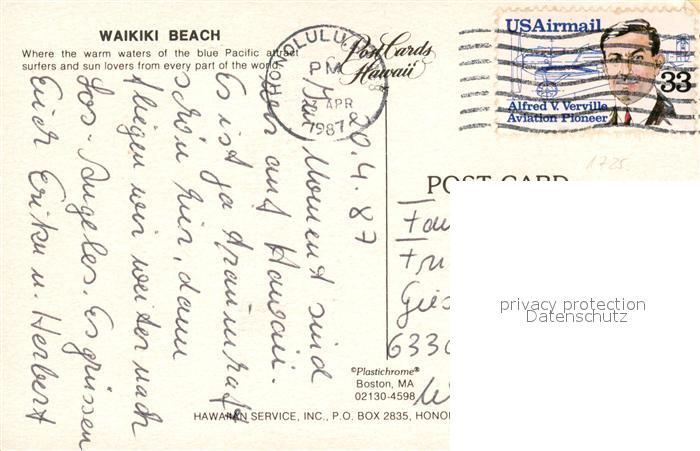 WAIKIKI BEACH
Where the warm waters of the blue Pacific attract
surfers and sun lovers from every part of the world.
HONOLULU
PM
APR
1987
Post Cards
Hawaii
USAirmail
33
Alfred V. Verville
Aviation Pioneer
1725
POST CARD
20.4.87
Im Moment sind
wir auf Hawaii.
Es ist ja traumhaft
schön hier, dann
fliegen wir weiter nach
Los-Angeles. Es grüssen
Euch Erika u. Herbert
Fa
Gies
633
privacy protection
Datenschutz
©Plastichrome®
Boston, MA
02130-4598
HAWAIIAN SERVICE, INC., P.O. BOX 2835, HONO